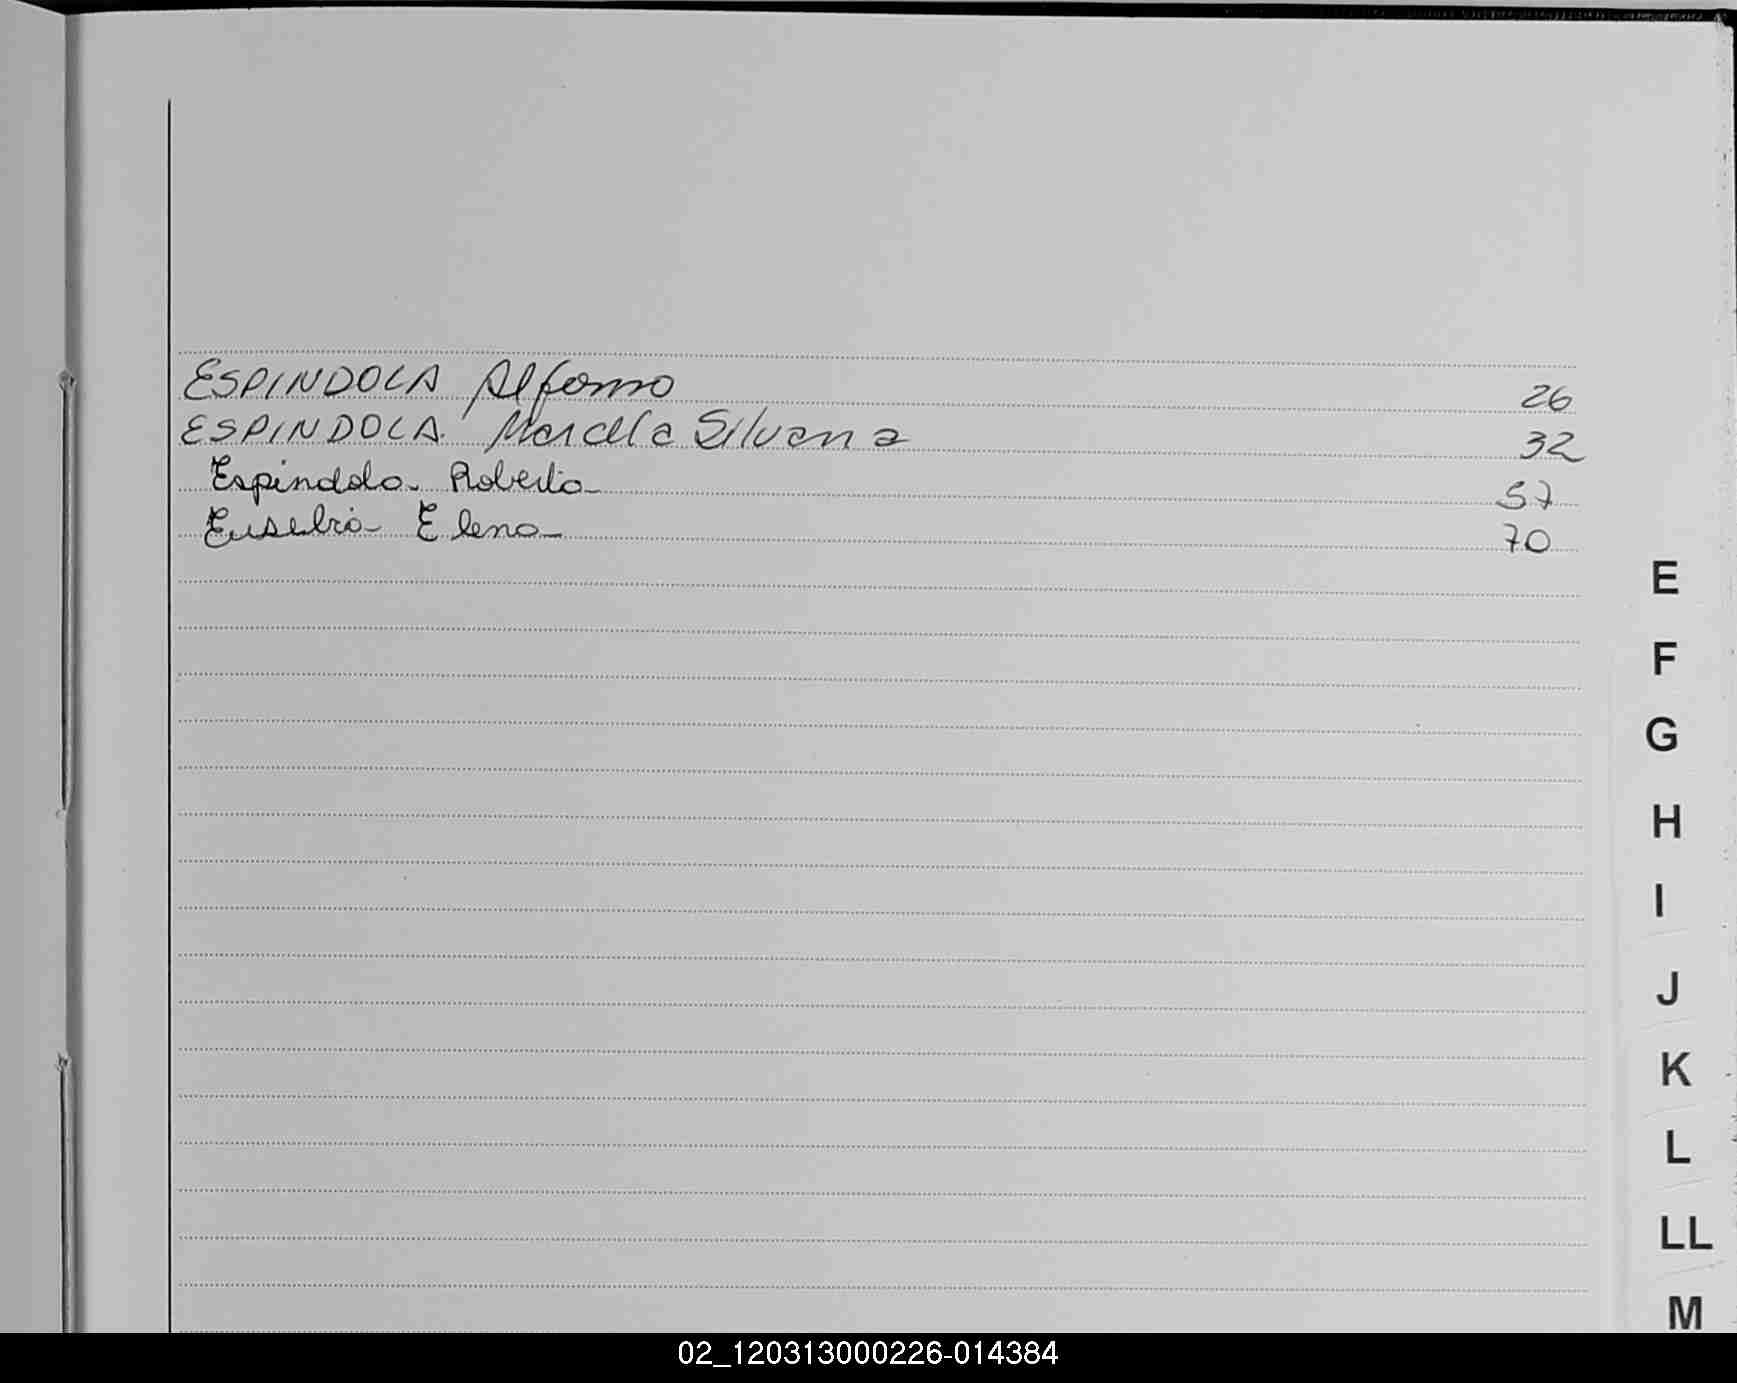 ESPINDOLA Alfonso 26
ESPINDOLA Marcela Silvana 32
Espindola Roberto 57
Eusebio Elena 70
E
F
G
H
I
J
K
L
LL
M
02_120313000226-014384